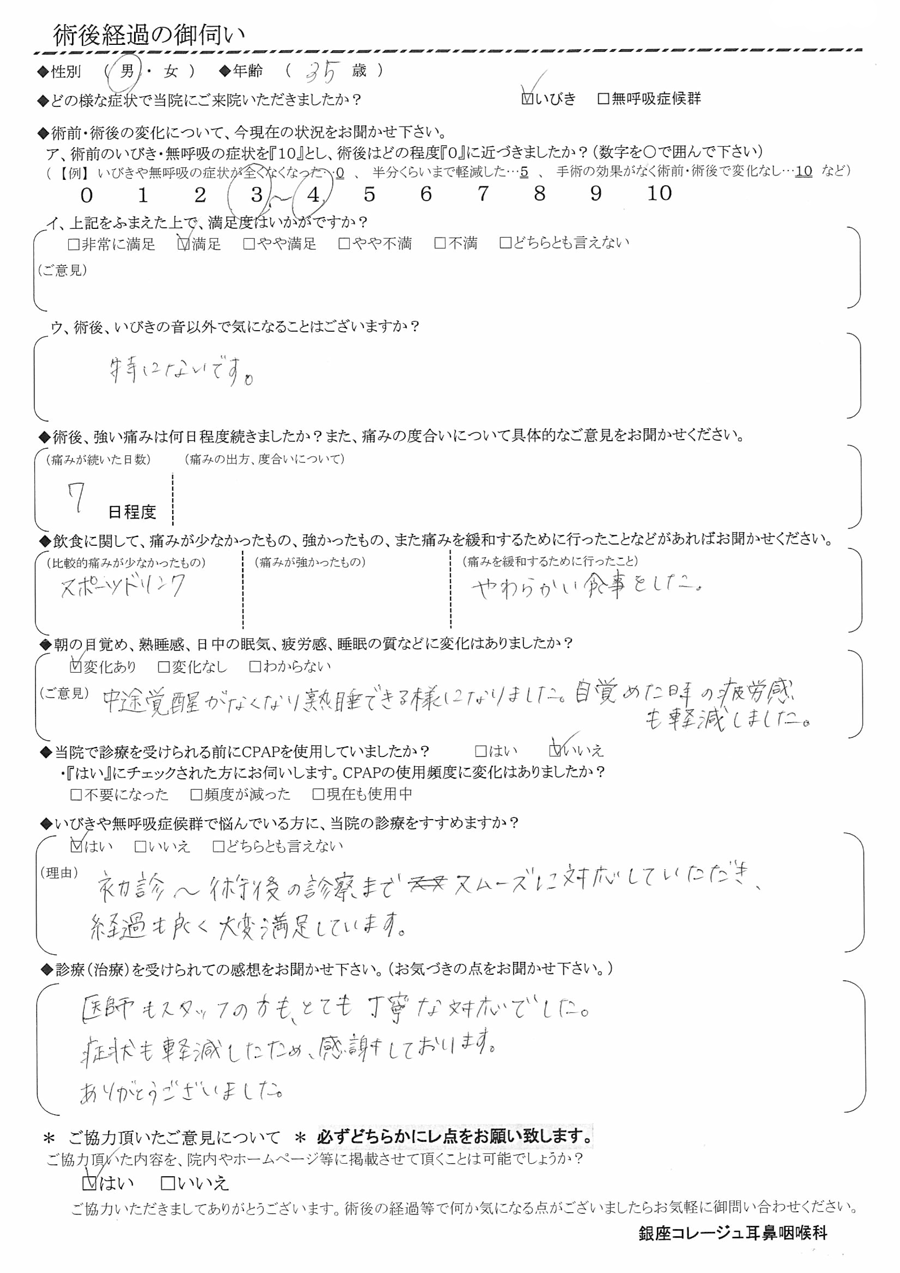 術後経過の御伺い
◆性別 （ 男 ・ 女 ） ◆年齢 （ 35 歳 ）
◆どの様な症状で当院にご来院いただきましたか？ ☑いびき □無呼吸症候群
◆術前・術後の変化について、今現在の状況をお聞かせ下さい。
ア、術前のいびき・無呼吸の症状を『10』とし、術後はどの程度『0』に近づきましたか？（数字を○で囲んで下さい）
（ 【例】 いびきや無呼吸の症状が全くなくなった…0 、 半分くらいまで軽減した…5 、 手術の効果がなく術前・術後で変化なし…10 など）
0 1 2 3 ～ 4 5 6 7 8 9 10
イ、上記をふまえた上で、満足度はいかがですか？
□非常に満足 ☑満足 □やや満足 □やや不満 □不満 □どちらとも言えない
（ご意見）
ウ、術後、いびきの音以外で気になることはございますか？
特にないです。
◆術後、強い痛みは何日程度続きましたか？また、痛みの度合いについて具体的なご意見をお聞かせください。
（痛みが続いた日数） （痛みの出方、度合いについて）
7 日程度
◆飲食に関して、痛みが少なかったもの、強かったもの、また痛みを緩和するために行ったことなどがあればお聞かせください。
（比較的痛みが少なかったもの） （痛みが強かったもの） （痛みを緩和するために行ったこと）
スポーツドリンク やわらかい食事をした。
◆朝の目覚め、熟睡感、日中の眠気、疲労感、睡眠の質などに変化はありましたか？
☑変化あり □変化なし □わからない
（ご意見） 中途覚醒がなくなり熟睡できる様になりました。目覚めた時の疲労感
も軽減しました。
◆当院で診療を受けられる前にCPAPを使用していましたか？ □はい ☑いいえ
・『はい』にチェックされた方にお伺いします。CPAPの使用頻度に変化はありましたか？
□不要になった □頻度が減った □現在も使用中
◆いびきや無呼吸症候群で悩んでいる方に、当院の診療をすすめますか？
☑はい □いいえ □どちらとも言えない
（理由） 初診～術後の診察までスムーズに対応していただき、
経過も良く大変満足しています。
◆診療（治療）を受けられての感想をお聞かせ下さい。（お気づきの点をお聞かせ下さい。）
医師もスタッフの方も、とても丁寧な対応でした。
症状も軽減したため、感謝しております。
ありがとうございました。
＊ ご協力頂いたご意見について ＊ 必ずどちらかにレ点をお願い致します。
ご協力頂いた内容を、院内やホームページ等に掲載させて頂くことは可能でしょうか？
☑はい □いいえ
ご協力いただきましてありがとうございます。術後の経過等で何か気になる点がございましたらお気軽に御問い合わせください。
銀座コレージュ耳鼻咽喉科